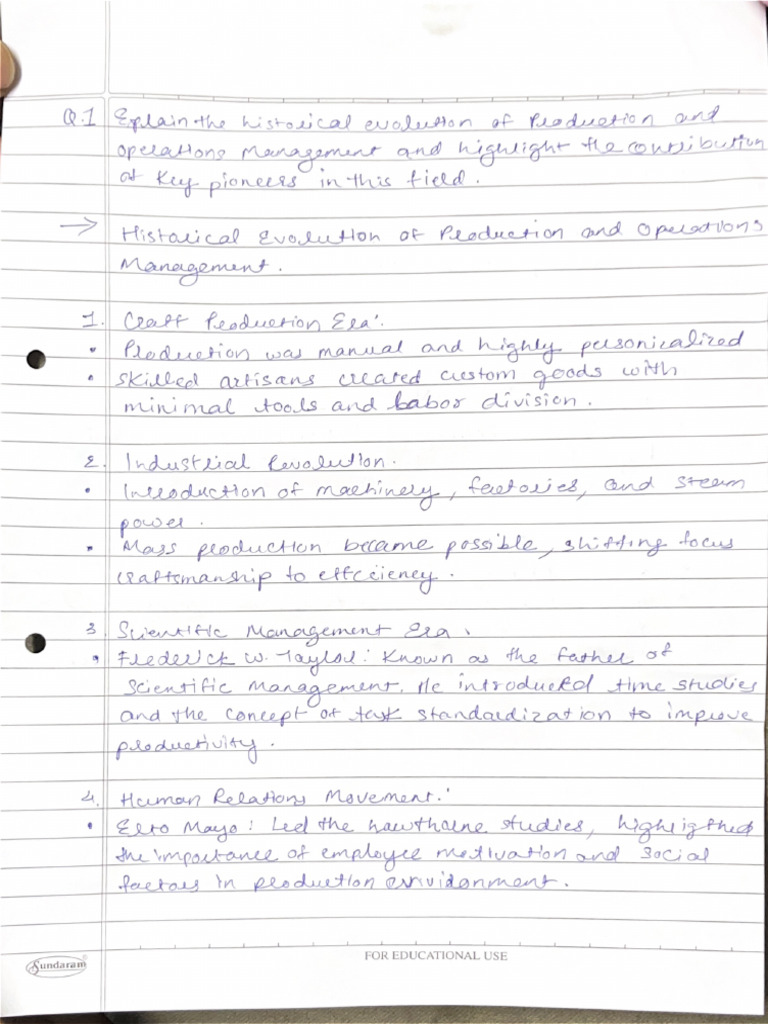 Q.1 Explain the historical evolution of Production and
operations management and highlight the contribution
of key pioneers in this field.
→ Historical Evolution of Production and Operations
Management.
1. Craft Production Era:
• Production was manual and highly personicalized
• Skilled artisans created custom goods with
minimal tools and labor division.
2. Industrial Revolution.
• Introduction of machinery, factories, and steam
power.
• Mass production became possible, shifting focus
craftsmanship to effceiency.
3. Scientific Management Era.
• Frederick W. Taylor: Known as the father of
Scientific management. He introduced time studies
and the concept of task standardization to improve
productivity.
4. Human Relations Movement:
• Elto Mayo: Led the hawthorne studies, highligthed
the importance of employee motivation and social
factors in production envvidonment.
Sundaram
FOR EDUCATIONAL USE